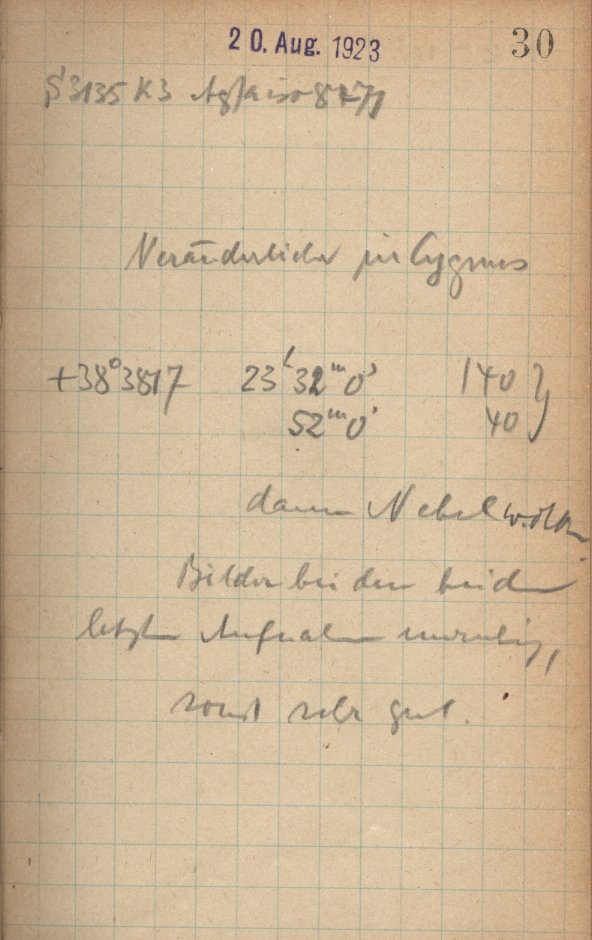 20. Aug. 1923 30
S 3135 K3 Agfa iso 8471
Veränderlicher in Cygnus
+38°3817 23ʰ32ᵐ0ˢ 140 }
52ᵐ0ˢ 40
dann Nebelwolken.
Bilder bei den beiden
letzten Aufnahmen unruhig,
sonst sehr gut.